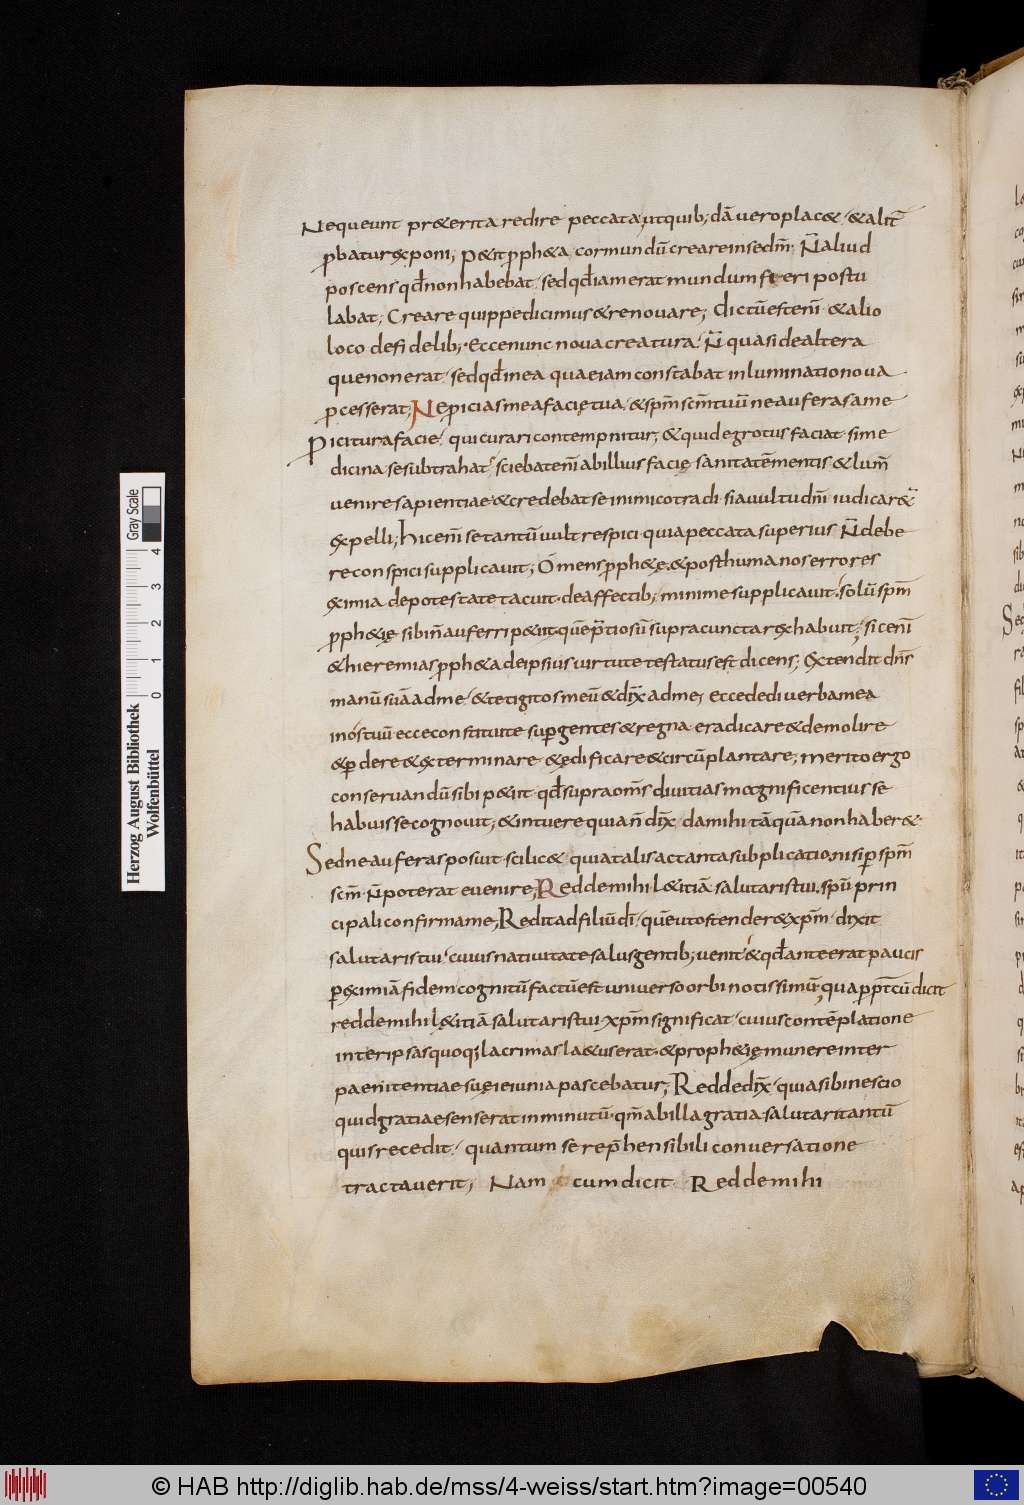 Nequeunt pr&erita redire peccata, utquib; dā uero plac& &alit̄
ꝓbatur exponi; P&it ꝓph&a cor mundū creare in se dm̄. N̄ aliud
poscens qđ non habebat. sed qđ iam erat mundum fieri postu
labat; Creare quippe dicimus & renouare; dictū est eni ̄ & alio
loco de fidelib; Ecce nunc noua creatura. N̄ quasi de altera
que non erat. sed qđ in ea quae iam constabat inluminatio noua
ꝓcesserat; Ne ꝓicias me a facie tua. & spm̄ scm̄ tuū ne auferas a me
Proicitur a facie. qui curari contempnitur; & quid egrotus faciat. si me
dicina se subtrahat. sciebat eni ̄ ab illius facię sanitatē mentis & lum̄
uenire sapientiae. & credebat se inimico tradi. si a uultu dn̄i iudicar&
expelli; Hic eni ̄ se tantū uult respici. quia peccata superius N̄ debe
re conspici supplicauit; O mens ꝓph&ę. & post humanos errores
eximia. de potestate tacuit. de affectib; minime supplicauit. solū spm̄
ꝓph&ię sibi n̄ auferri p&iit. quē p̄tiosū supra cuncta rex habuit; sic eni ̄
& hieremias ꝓph&a de ipsius uirtute testatus est dicens; Extendit dn̄s
manū suā ad me. & tetigit os meū & dix̄ ad me; ecce dedi uerba mea
in os tuū ecce constitui te suꝑ gentes & regna. eradicare & demolire
& ꝑdere & exterminare. & ędificare & circūplantare; merito ergo
conseruandū sibi p&iit. qđ supra oms̄ diuitias magnificentius se
habuisse cognouit; & intuere quia n̄ dix̄ da mihi. tāquā non haber&
Sed ne auferas posuit. scilic& quia talis ac tanta subplicatio. nisi ꝑ spm̄
scm̄ N̄ poterat euenire; Redde mihi l&itiā salutaris tui. spū prin
cipali confirma me; Redit ad filiū di ̄. quē ut ostender& xpm̄. dixit
salutaris tui. cuius natiuitate salus gentib; uenit. & qđ ante erat paucis
ꝑ eximiā fidem cognitū factū est uniuerso orbi notissimū; qua ꝓpt̄ cū dicit
redde mihi l&itiā salutaris tui. xpm̄ significat. cuius contēplatione
inter ipsas quoq; lacrimas la&us erat. & proph&ię munere inter
paenitentiae suę ieiunia pascebatur; Redde dix̄. quia sibi nescio
quid gratiae senserat inminutū. qm̄ ab illa gratia salutari tantū
quis recedit. quantum se rep̄hensibili conuersatione
tractauerit; Nam cum dicit. Redde mihi
Herzog August Bibliothek
Wolfenbüttel
0 1 2 3 4
Gray Scale
© HAB http://diglib.hab.de/mss/4-weiss/start.htm?image=00540